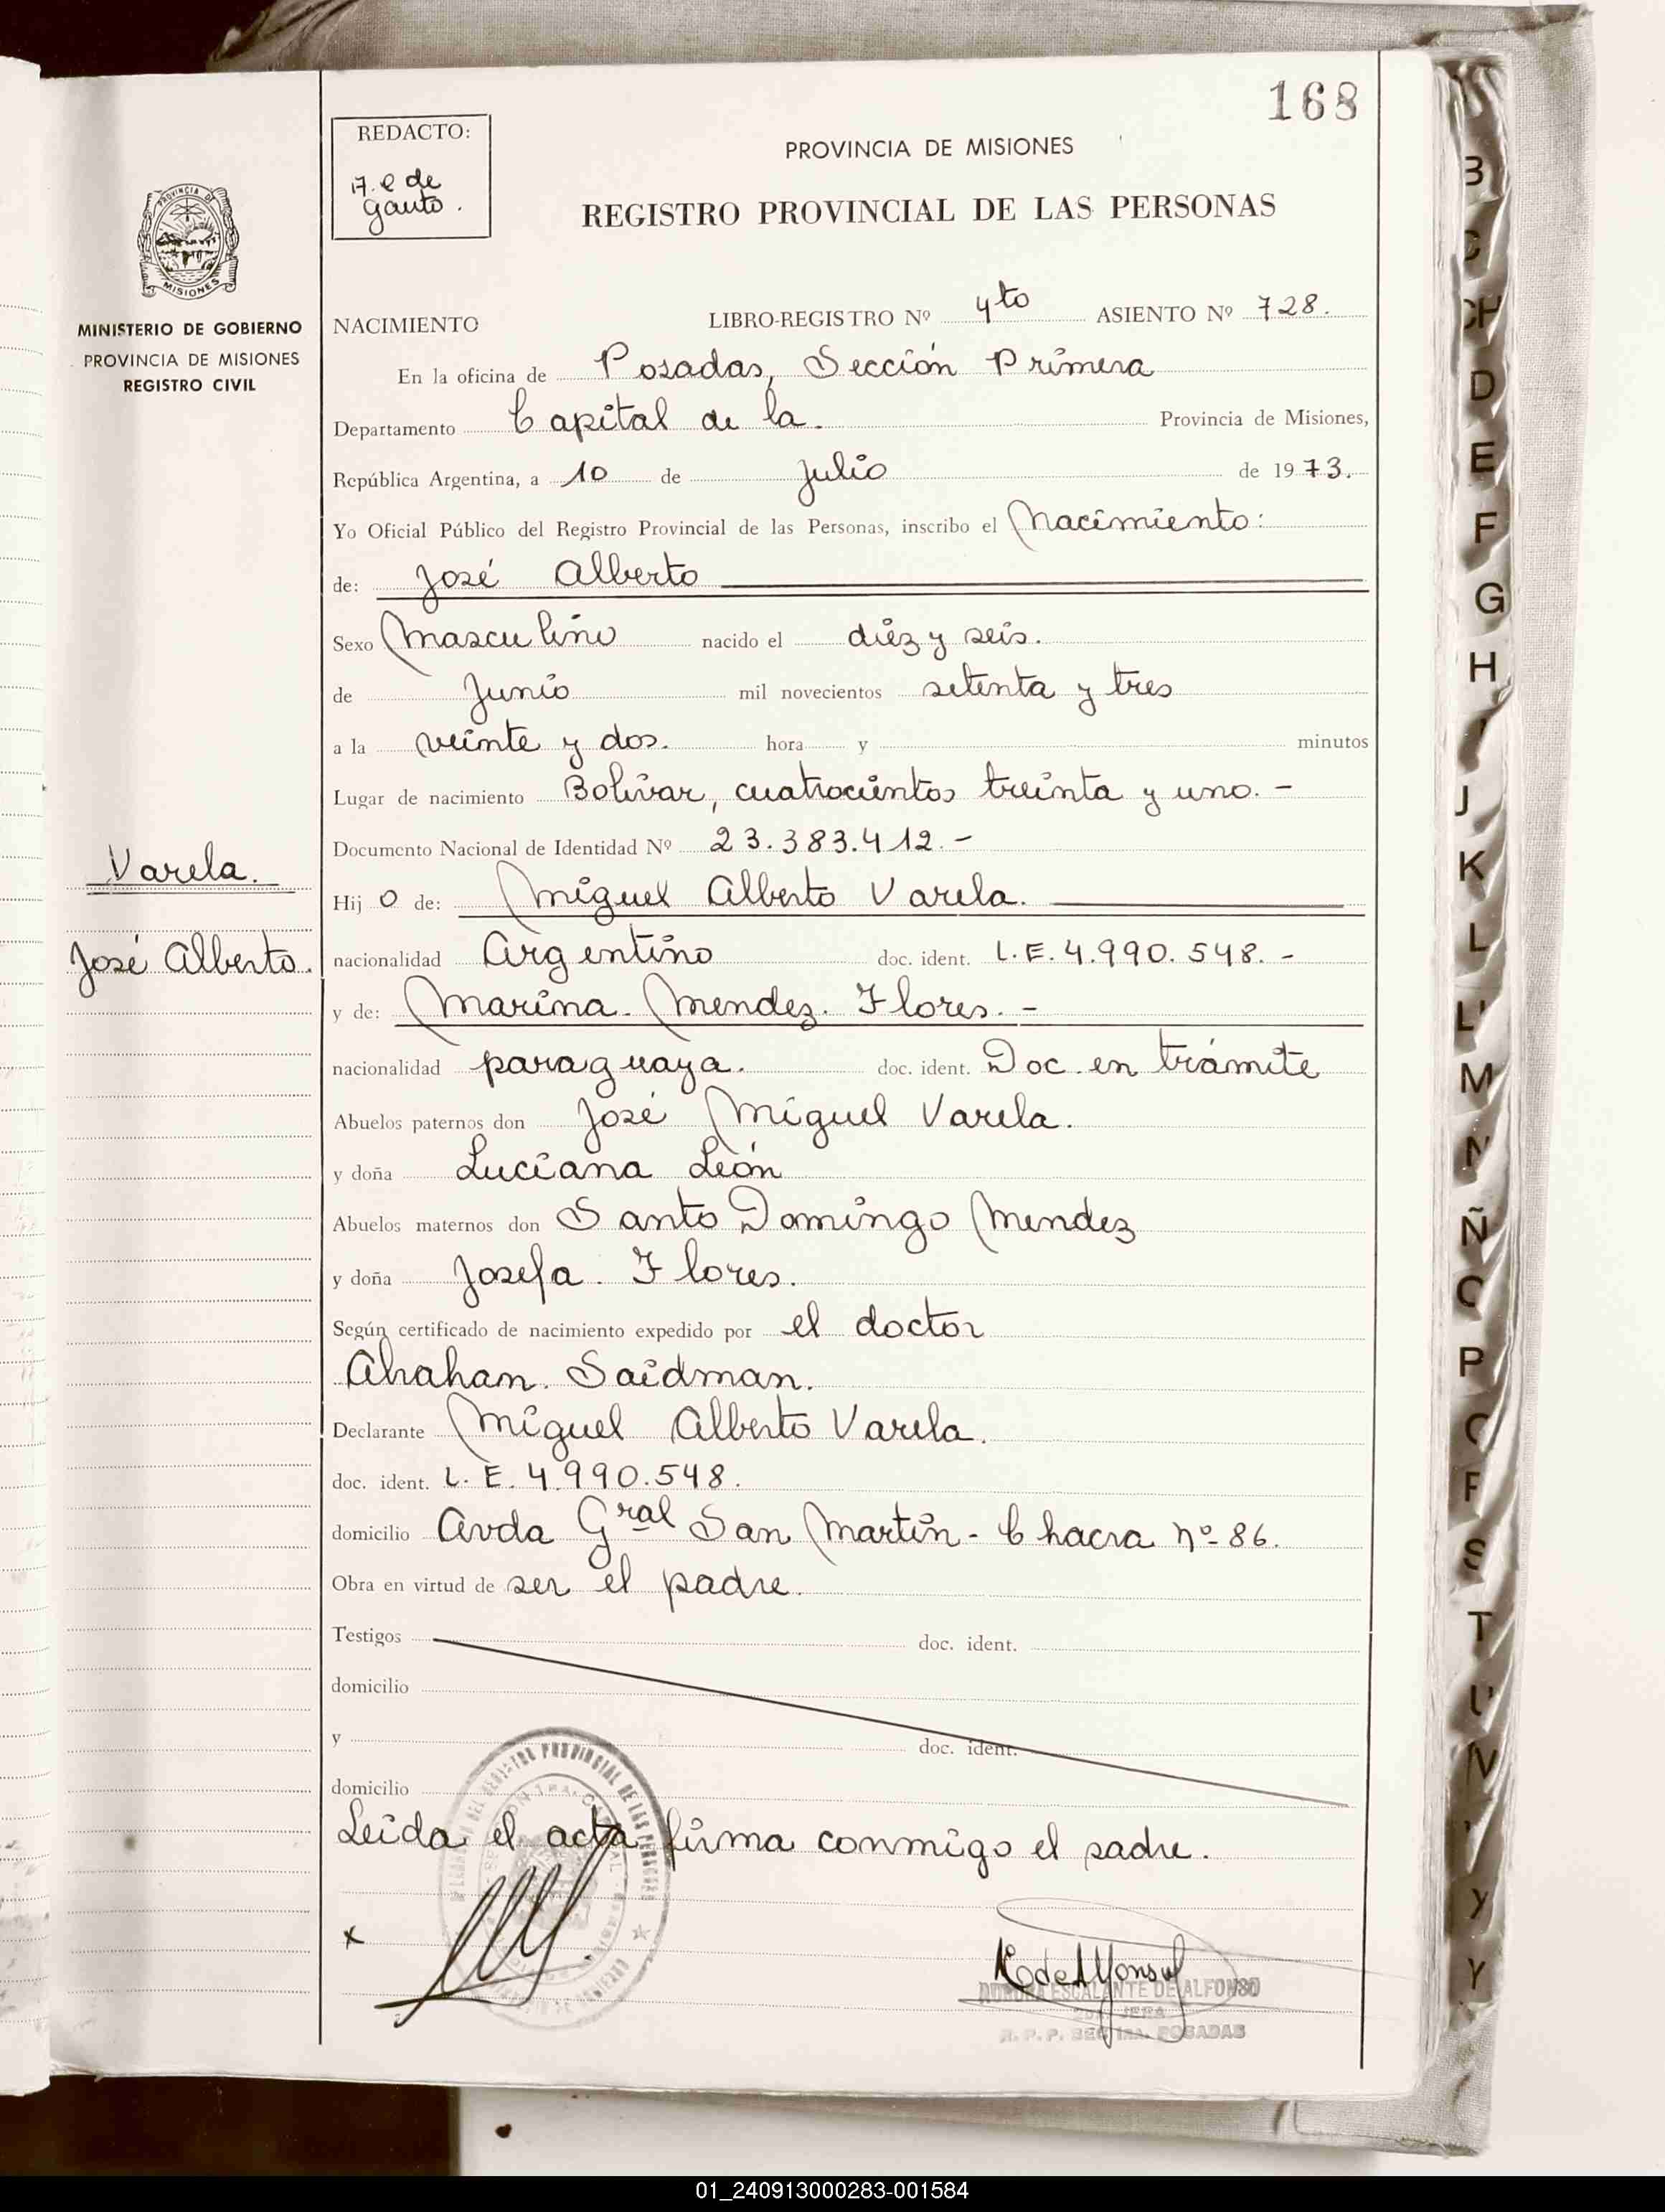 168
REDACTO:
17. e de
Gauto.
PROVINCIA DE MISIONES
REGISTRO PROVINCIAL DE LAS PERSONAS
PROVINCIA DE
MISIONES
MINISTERIO DE GOBIERNO
PROVINCIA DE MISIONES
REGISTRO CIVIL
NACIMIENTO LIBRO-REGISTRO Nº 4to ASIENTO Nº 728.
En la oficina de Posadas, Sección Primera
Departamento Capital de la. Provincia de Misiones,
República Argentina, a 10 de Julio de 1973.
Yo Oficial Público del Registro Provincial de las Personas, inscribo el Nacimiento:
de: José Alberto
Sexo Masculino nacido el diez y seis.
de Junio mil novecientos setenta y tres
a la veinte y dos. hora y minutos
Lugar de nacimiento Bolívar, cuatrocientos treinta y uno. -
Documento Nacional de Identidad Nº 23.383.412. -
Varela.
Hij o de: Miguel Alberto Varela.
José Alberto.
nacionalidad Argentino doc. ident. L.E. 4.990.548. -
y de: Marina. Mendez. Flores. -
nacionalidad paraguaya. doc. ident. Doc. en trámite
Abuelos paternos don José Miguel Varela.
y doña Luciana León
Abuelos maternos don Santo Domingo Mendez
y doña Josefa. Flores.
Según certificado de nacimiento expedido por el doctor
Ahahan. Saidman.
Declarante Miguel Alberto Varela.
doc. ident. L.E. 4.990.548.
domicilio Avda Gral San Martín - Chacra nº 86.
Obra en virtud de ser el padre.
Testigos doc. ident.
domicilio
y doc. ident.
domicilio
Leida el acta firma conmigo el padre.
x
ESCALANTE DE ALFONSO
R. P. P. SEC 1ra. POSADAS
B
C
CH
D
E
F
G
H
I
J
K
L
LL
M
N
Ñ
O
P
Q
R
S
T
U
V
Y
01_240913000283-001584